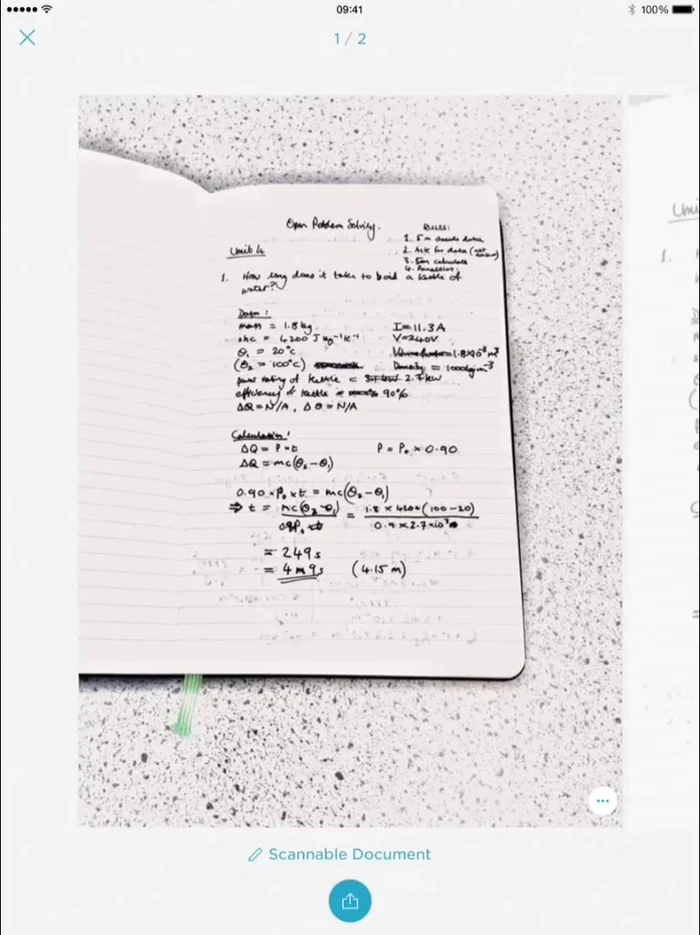 09:41
100%
1 / 2
Open Problem Solving.
RULES:
1. 5m decide data
2. Ask for data (not
3. 5m calculate
4.
Unit 4
1. How long does it take to boil a kettle of
water?
Data:
mass = 1.8 kg
shc = 4200 J kg⁻¹K⁻¹
θ₁ = 20°C
(θ₂ = 100°C)
power rating of kettle = 2.7 kW
efficiency of kettle = 90%
ΔQ = N/A, Δθ = N/A
I = 11.3 A
V = 240V
= 1.8×10⁻³ m³
Density = 1000kgm⁻³
Calculation:
ΔQ = P×t
P = P₀ × 0.90
ΔQ = mc(θ₂-θ₁)
0.90 × P₀ × t = mc(θ₂-θ₁)
⇒ t = mc(θ₂-θ₁) = 1.8 × 4200 (100-20)
0.9P₀ 0.9 × 2.7×10³
= 249s
= 4m9s (4.15 m)
Uni
1.
Scannable Document